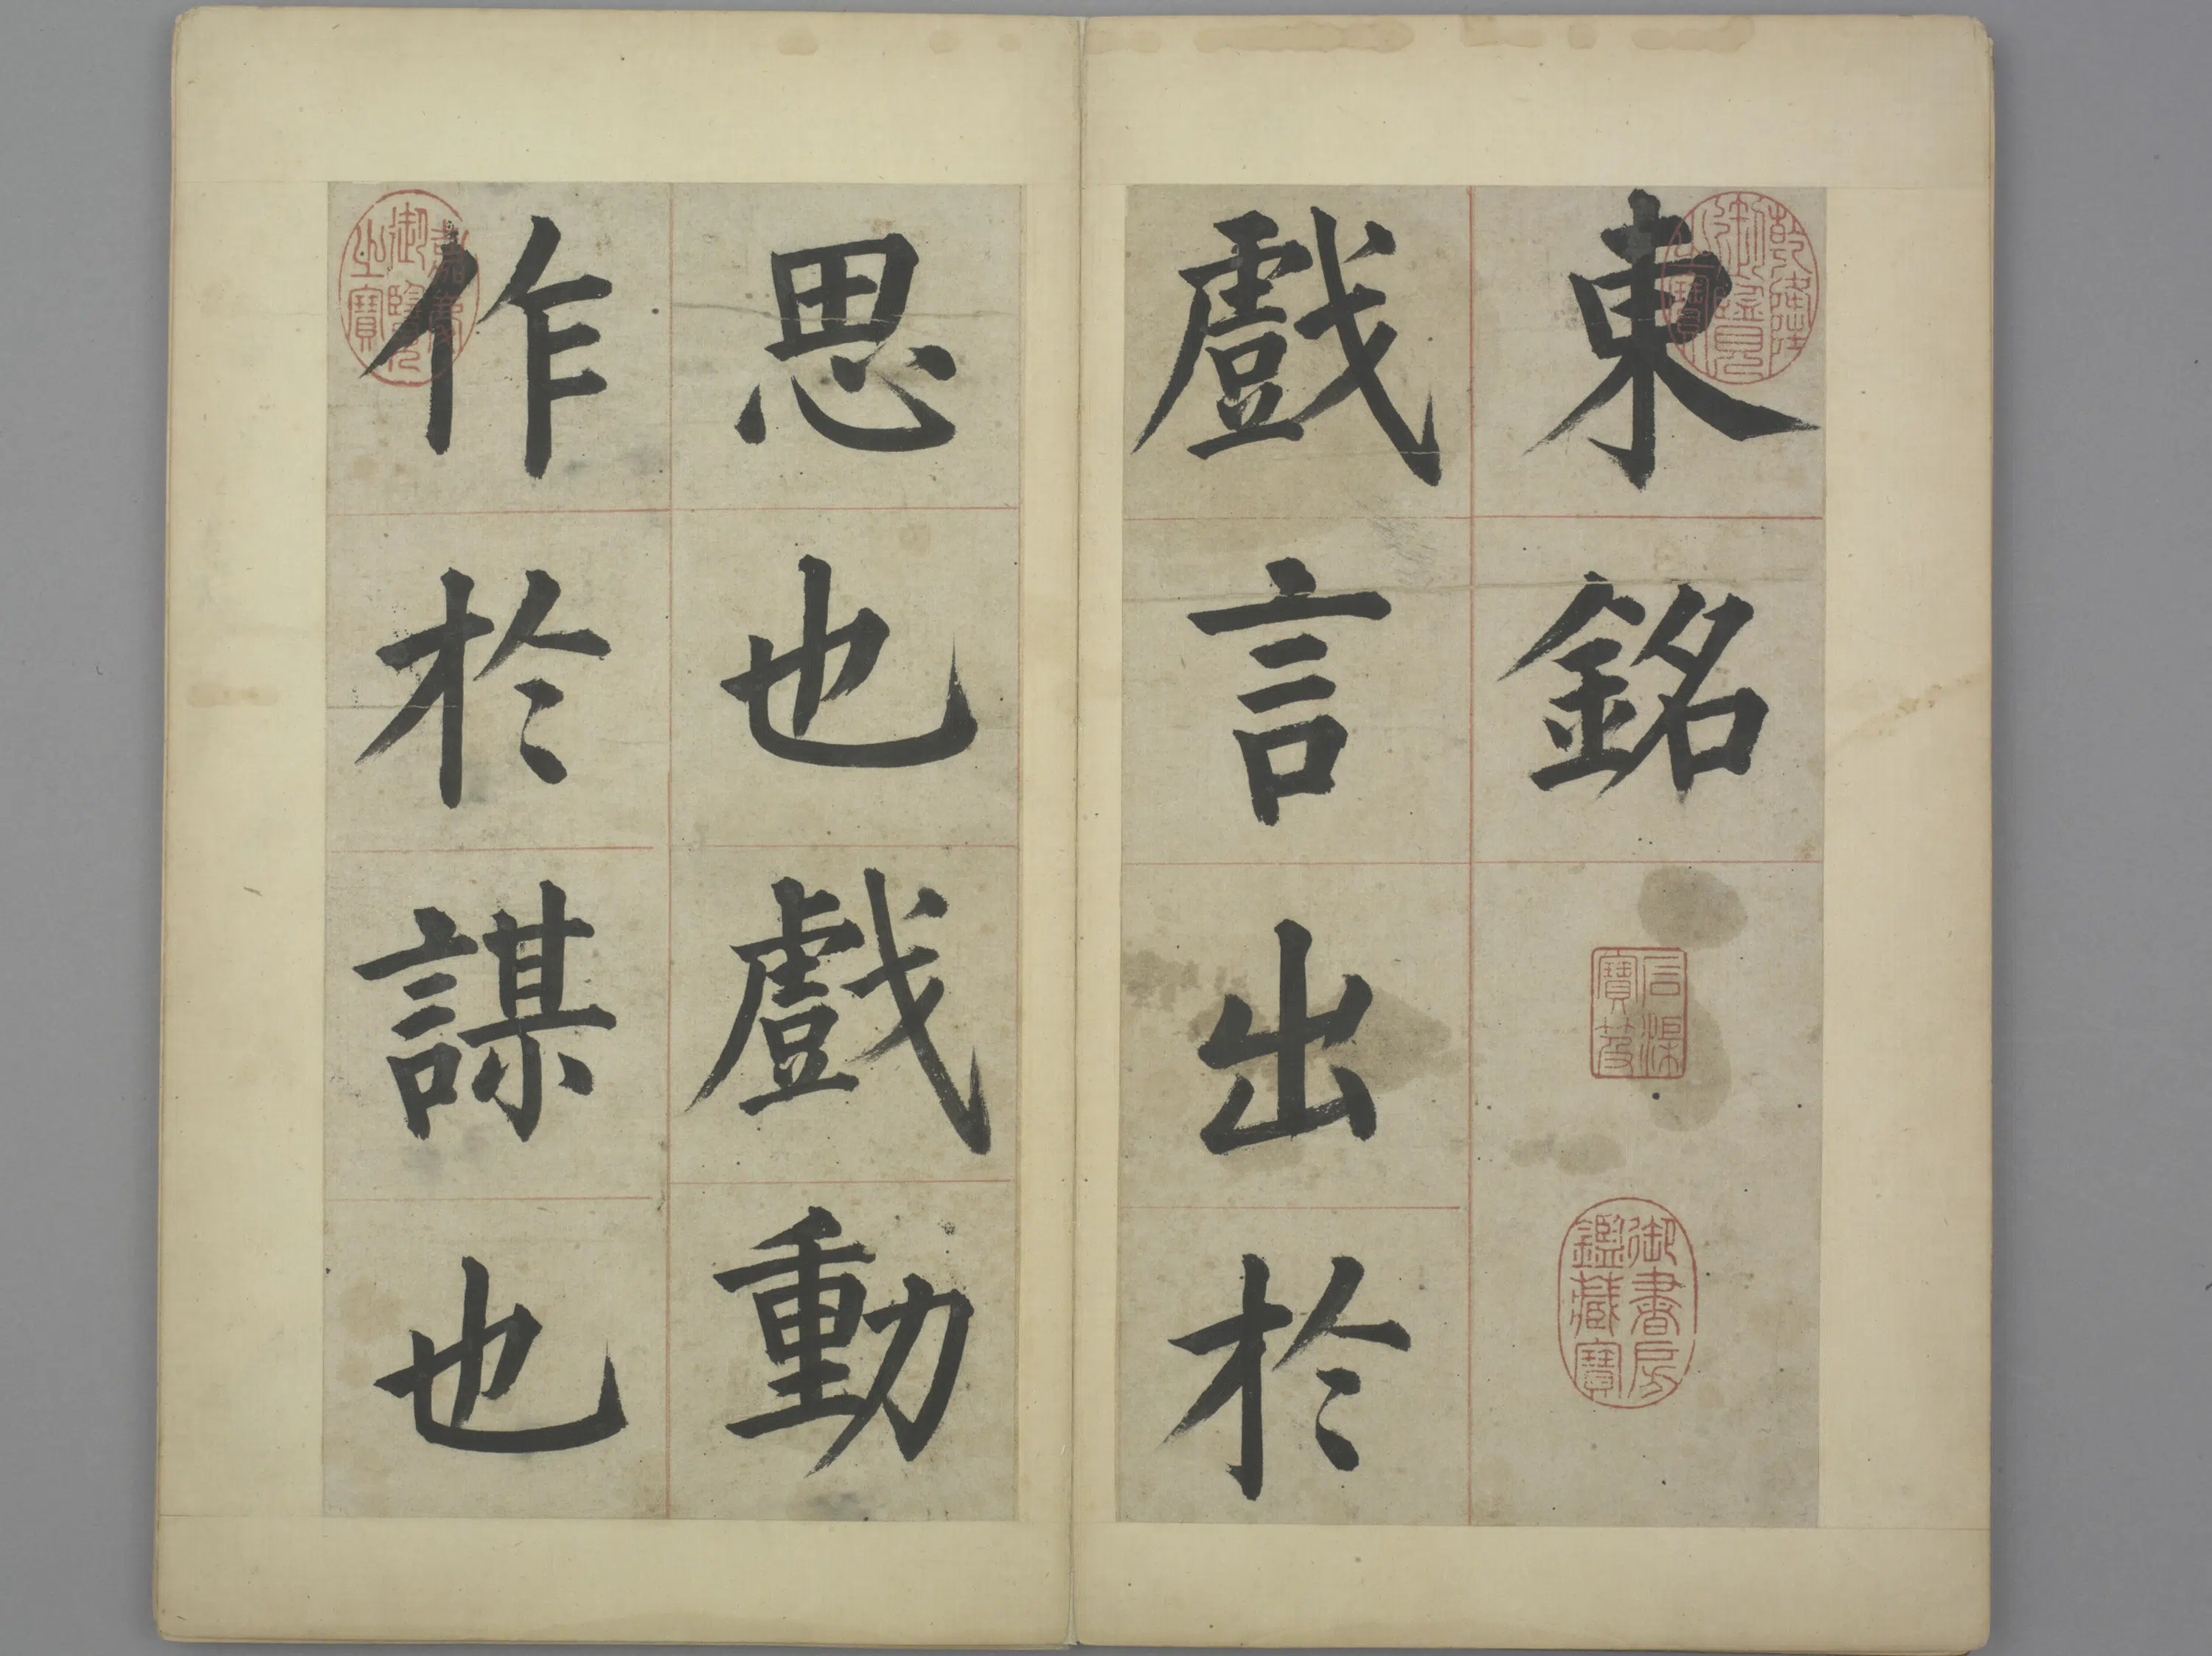 東銘
戲言出於
思也戲動
作於謀也
乾隆御覽之寶
石渠寶笈
御書房鑑藏寶
嘉慶御覽之寶